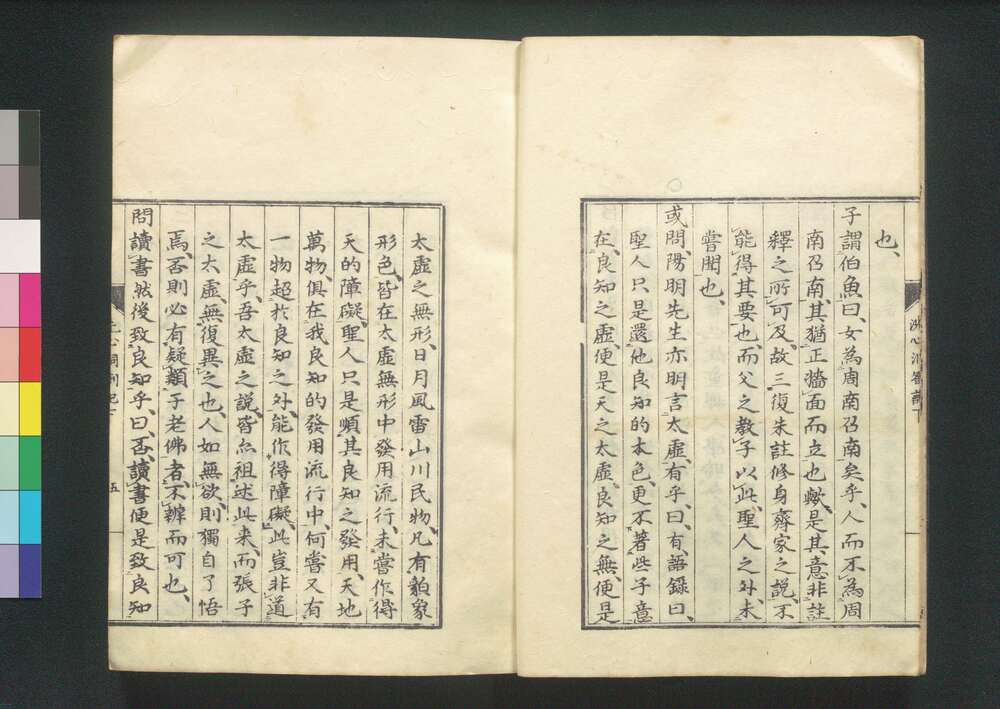 也、
子謂伯魚曰、女為周南召南矣乎、人而不為周
南召南、其猶正牆面而立也歟、是其意非註
釋之所可及、故三復朱註修身齊家之說、不
能得其要也、而父之教子以此、聖人之外、未
嘗聞也、
或問、陽明先生亦明言太虛有乎、曰、有、語錄曰、
聖人只是還他良知的本色、更不著些子意
在、良知之虛、便是天之太虛、良知之無、便是
太虛之無形、日月風雷山川民物、凡有貌象
形色、皆在太虛無形中發用流行、未嘗作得
天的障礙、聖人只是順其良知之發用、天地
萬物、俱在我良知的發用流行中、何嘗又有
一物超於良知之外、能作得障礙、此豈非道
太虛乎、吾太虛之說、皆亦祖述此来、而張子
之太虛、無復異之也、人如無欲、則獨自了悟
焉、否則必有疑類于老佛者、不辨而可也、
問讀書然後致良知乎、曰、否、讀書便是致良知
五